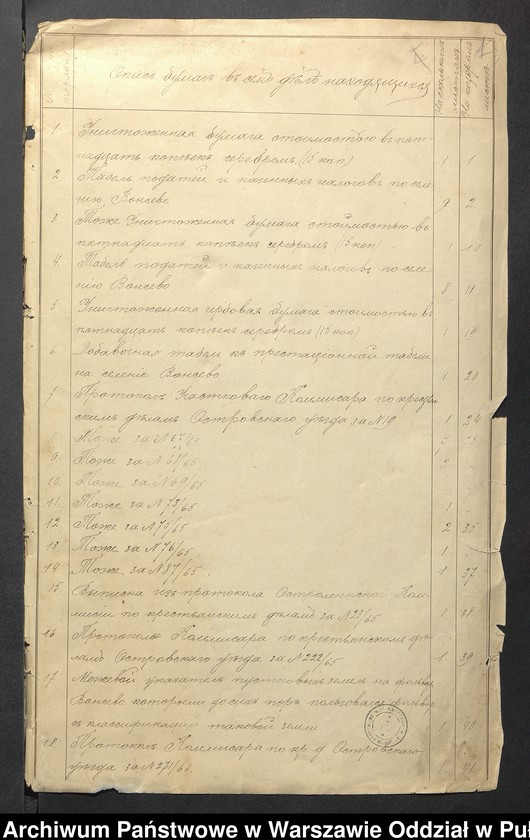 Опись бумаг въ сей дѣлѣ находящихся
На сколькихъ листахъ
На котором листѣ
1 Уничтоженная бумага стоимостью въ пят-
надцать копѣекъ серебромъ (15 коп) 1 1
2 Табель податей и казенныхъ налоговъ по селе
нію Вонсево 9 2
3 Тоже Уничтоженная бумага стоймостью въ
пятнадцать копѣекъ серебромъ (15 коп) 1 10
4 Табель податей и казенныхъ налоговъ по селе
нію Вонсево 8 11
5 Уничтоженная гербовая бумага стоимостью въ
пятнадцать копѣекъ серебромъ (15 коп) 1 19
6 Добавочная табель къ престаціонной табели
на селеніе Вонсево 4 20
7 Протоколъ Участковаго Коммисара по крестьян
скимъ дѣламъ Островскаго уѣзда за N 19 1 24
8 Тоже за N 67/65
9 Тоже за N 68/65
10 Тоже за N 69/65
11 Тоже за N 73/65 1
12 Тоже за N 75/65 2 35
13 Тоже за N 76/65 1
14 Тоже за N 87/65 1 37
15 Выписка изъ протокола Остроленской Ком-
мисіи по крестьянскимъ дѣламъ за N 23/65 1 38
16 Протоколъ Коммисара по крестьянскимъ дѣ-
ламъ Островскаго уѣзда за N 222/65 1 39
17 Межевой указатель пустковыхъ земель на
Вонсево которыми до сихъ поръ пользовался фольвар
съ классификаціей таковой земли 1 40
18 Протоколъ Коммисара по кр. д. Островскаго
уѣзда за N 271/66. 1 41
Archiwum Państwowe w Warszawie Oddział w Puł